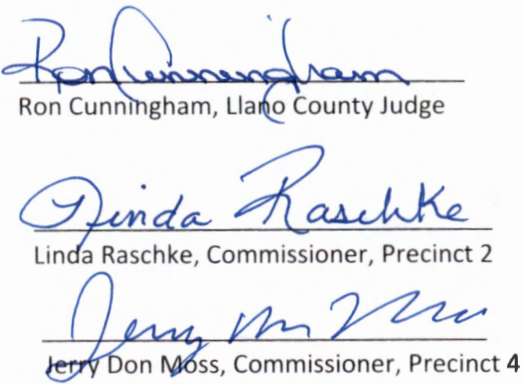 Ron Cunningham
Ron Cunningham, Llano County Judge
Linda Raschke
Linda Raschke, Commissioner, Precinct 2
Jerry
Jerry Don Moss, Commissioner, Precinct 4